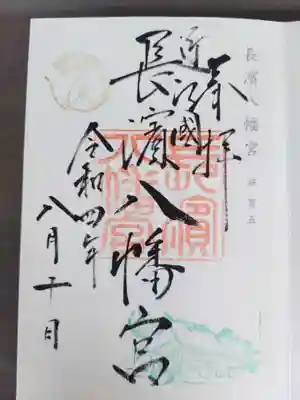 長濱八幡宮
奉拝
近江國
長濱八幡宮
令和四年
八月十日